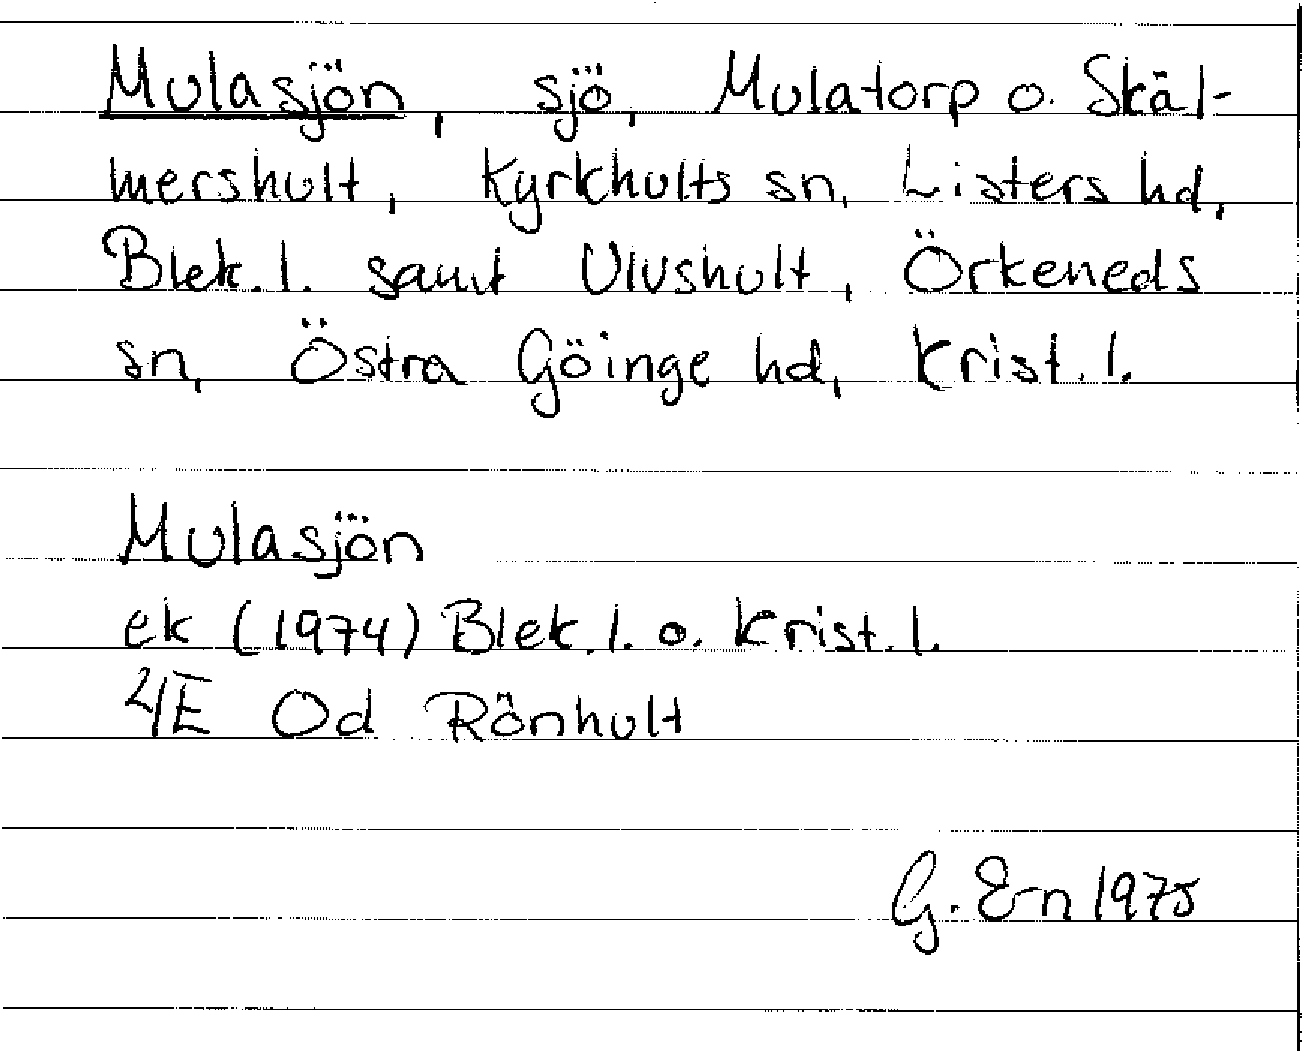 Mulasjön, sjö, Mulatorp o. Skäl-
mershult, Kyrkhults sn, Listers hd,
Blek. l. samt Ulvshult, Örkeneds
sn, Östra Göinge hd, Krist. l.
Mulasjön
ek (1974) Blek. l. o. Krist. l.
4E Od Rönhult
G. Ern 1975